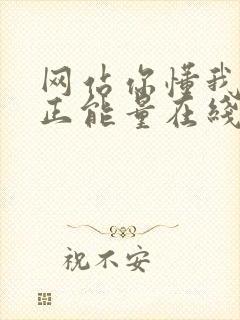 网站你懂我
正能量在线
祝不安